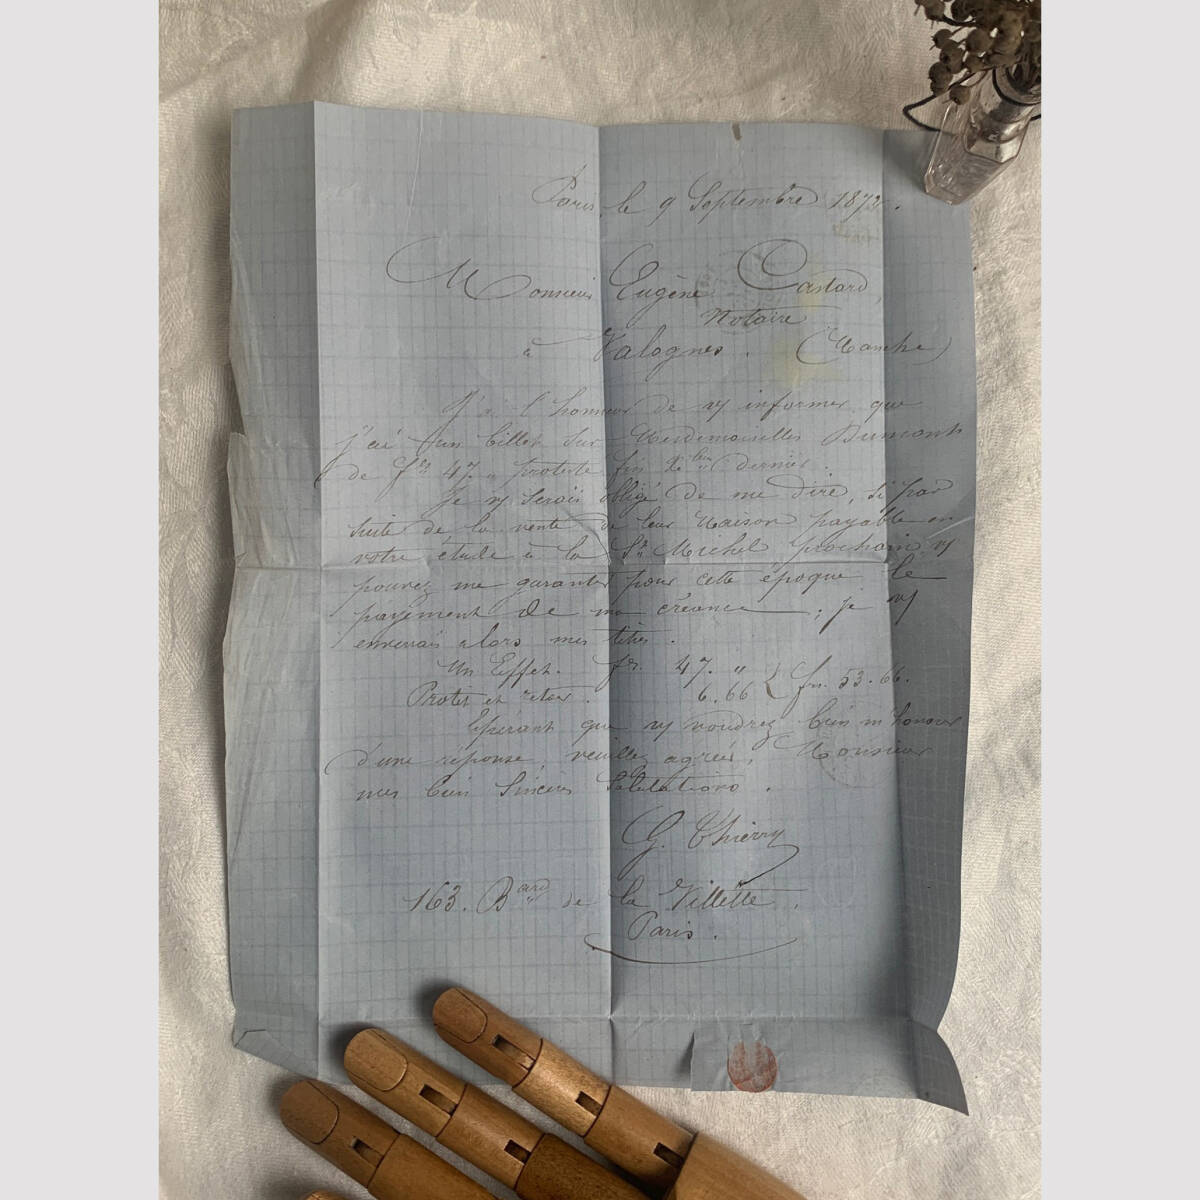 Paris, le 9 Septembre 1872.
Monsieur Eugène Castard,
Notaire
à Valognes. (Manche)
J'ai l'honneur de vs informer que
j'ai un billet sur Mesdemoiselles Dumont
de frs 47. " protesté fin Xbre dernier.
Je vs serais obligé de me dire, si par
suite de la vente de leur Maison payable en
votre étude à la St Michel prochain, vs
pouvez me garantir pour cette époque le
payement de ma créance ; je vs
enverrai alors mes titres.
Un Effet. frs. 47. "
Protêt et 6.66 } frs. 53.66.
Espérant que vs voudrez bien m'honorer
d'une réponse, veuillez agréer, Monsieur
mes bien Sincères Salutations.
G. Thierry
163. Bard de la Villette.
Paris.